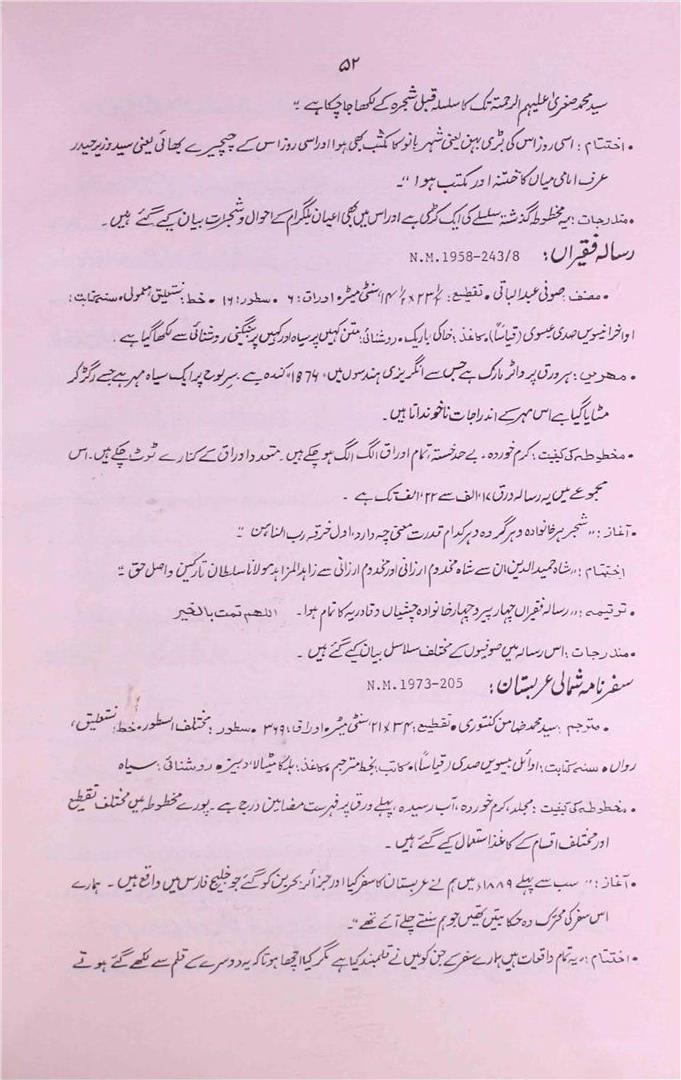 ۵۲
سید محمد صغریٰ علیہم الرحمتہ تک کا سلسلہ قبل شجرہ کے لکھا جا چکا ہے ۔"
• اختتام : اسی روز اس کی بڑی بہن یعنی شہر بانو کا مکتب بھی ہوا اور اسی روز اس کے چچیرے بھائی یعنی سید وزیر حیدر
عرف امامی میاں کا ختنہ اور مکتب ہوا "۔
• مندرجات : یہ مخطوطہ گذشتہ سلسلے کی ایک کڑی ہے اور اس میں بھی اعیان بلگرام کے احوال و شجرات بیان کیے گئے ہیں ۔
رسالہ فقیراں : N.M.1958-243/8
• مصنف : صوفی عبدالباقی • تقطیع : ۲۳½ × ۱۴½ سنٹی میٹر • اوراق : ۶ • سطور : ۱۶ • خط : نستعلیق معمولی • سنہ کتابت :
اواخر انیسویں صدی عیسوی (قیاساً) • کاغذ : خاکی باریک • روشنائی : متن کہیں پر سیاہ اور کہیں پر بینگنی روشنائی سے لکھا گیا ہے ۔
• مہریں : ہر ورق پر واٹر مارک ہے جس سے انگریزی ہندسوں میں "1876" کندہ ہے ۔ سرلوح پر ایک سیاہ مہر ہے جسے رگڑ کر
مٹایا گیا ہے اس مہر کے اندراجات ناخوندانا ہیں ۔
• مخطوطہ کی کیفیت : کرم خوردہ ، بے حد خستہ ، تمام اوراق الگ الگ ہو چکے ہیں ۔ متعدد اوراق کے کنارے ٹوٹ چکے ہیں ۔ اس
مجموعے میں یہ رسالہ ورق ۱۷، الف سے ۲۲، الف تک ہے ۔
• آغاز : "شجر ہر خانوادہ و ہر گروہ و ہر کدام قدرت معنی چہ دارد ، اول خرقہ رب الناہن "۔
اختتام : "شاہ حمید الدین ان سے شاہ مخدوم ارزانی اور مخدوم ارزانی سے زاہد المزاہد مولانا سلطان تارکین واصل حق "۔
• ترقیمہ : "رسالہ فقیراں چہار پیر و چہار خانوادہ چشتیاں و قادریہ کا تمام ہوا ۔ اللھم تمت بالخیر
• مندرجات : اس رسالہ میں صوفیوں کے مختلف سلاسل بیان کیے گئے ہیں ۔
سفر نامہ شمالی عربستان : N.M.1973-205
• مترجم : سید محمد ضامن کنتوری • تقطیع : ۳۴ × ۲۱ سنٹی میٹر • اوراق : ۳۶۹ • سطور : مختلف السطور • خط : نستعلیق ،
رواں • سنہ کتابت : اوائل بیسویں صدی (قیاساً) • کاتب : بخط مترجم • کاغذ : ہلکا مٹیالا دبیز • روشنائی : سیاہ
• مخطوطہ کی کیفیت : مجلد ، کرم خوردہ ، آب رسیدہ ، پہلے ورق پر فہرست مضامین درج ہے ۔ پورے مخطوطہ میں مختلف تقطیع
اور مختلف اقسام کے کاغذ استعمال کیے گئے ہیں ۔
• آغاز : "سب سے پہلے ۱۸۸۹ء میں ہم نے عربستان کا سفر کیا اور جزائر بحرین کو گئے جو خلیج فارس میں واقع ہیں ۔ ہمارے
اس سفر کی محرک وہ حکایتیں تھیں جو ہم سنتے چلے آئے تھے "۔
• اختتام : "یہ تمام واقعات ہیں ہمارے سفر کے جن کو میں نے قلمبند کیا ہے مگر کیا اچھا ہوتا کہ یہ دوسرے کے قلم سے لکھے گئے ہوتے